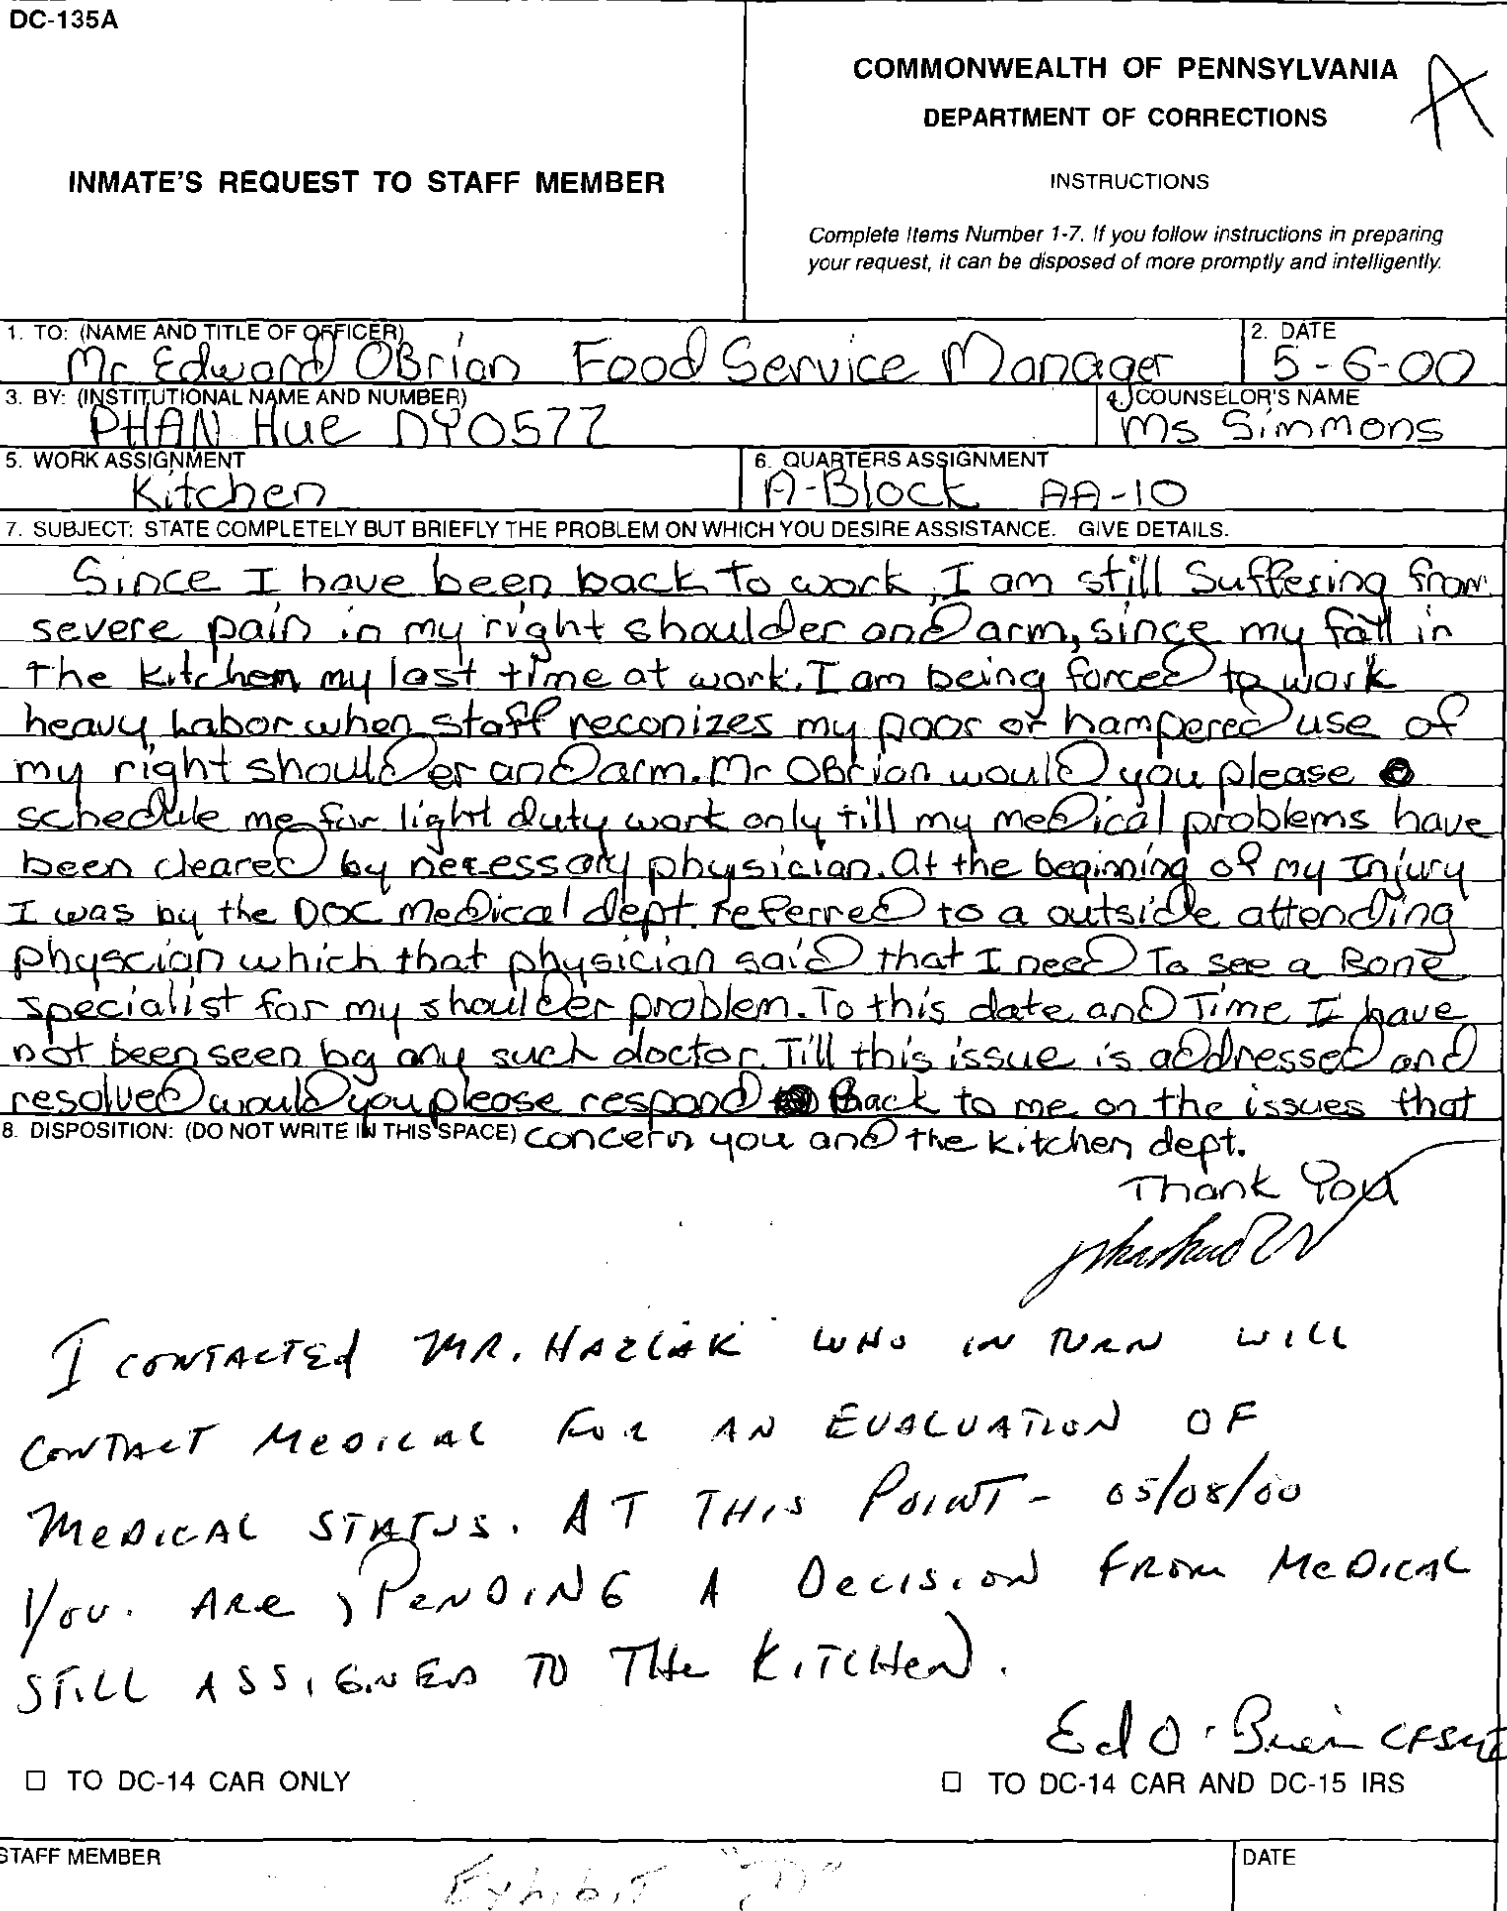 DC-135A
INMATE'S REQUEST TO STAFF MEMBER
COMMONWEALTH OF PENNSYLVANIA
A
DEPARTMENT OF CORRECTIONS
INSTRUCTIONS
Complete Items Number 1-7. If you follow instructions in preparing
your request, it can be disposed of more promptly and intelligently.
1. TO: (NAME AND TITLE OF OFFICER)
Mr Edward OBrian Food Service Manager
2. DATE
5-6-00
3. BY: (INSTITUTIONAL NAME AND NUMBER)
PHAN Hue DY0577
4. COUNSELOR'S NAME
Ms Simmons
5. WORK ASSIGNMENT
Kitchen
6. QUARTERS ASSIGNMENT
A-Block AA-10
7. SUBJECT: STATE COMPLETELY BUT BRIEFLY THE PROBLEM ON WHICH YOU DESIRE ASSISTANCE. GIVE DETAILS.
Since I have been back to work, I am still Suffering from
severe pain in my right shoulder and arm, since my fall in
the kitchen my last time at work. I am being forced to work
heavy Labor when staff reconizes my poor or hampered use of
my right shoulder and arm. Mr OBrian would you please
schedule me for light duty work only till my medical problems have
been cleared by necessary physician. At the beginning of my Injury
I was by the DOC Medical dept. referred to a outside attending
physcian which that physician said that I need To see a Bone
specialist for my shoulder problem. To this date and Time I have
not been seen by any such doctor. Till this issue is addressed and
resolved would you please respond Back to me on the issues that
8. DISPOSITION: (DO NOT WRITE IN THIS SPACE) concern you and the kitchen dept.
Thank You
I CONTACTED MR. HAZLAK WHO IN TURN WILL
CONTACT MEDICAL FOR AN EVALUATION OF
MEDICAL STATUS. AT THIS POINT - 05/08/00
YOU ARE, PENDING A DECISION FROM MEDICAL
STILL ASSIGNED TO THE KITCHEN.
Ed O'Brien
TO DC-14 CAR ONLY
TO DC-14 CAR AND DC-15 IRS
STAFF MEMBER
DATE
Exhibit